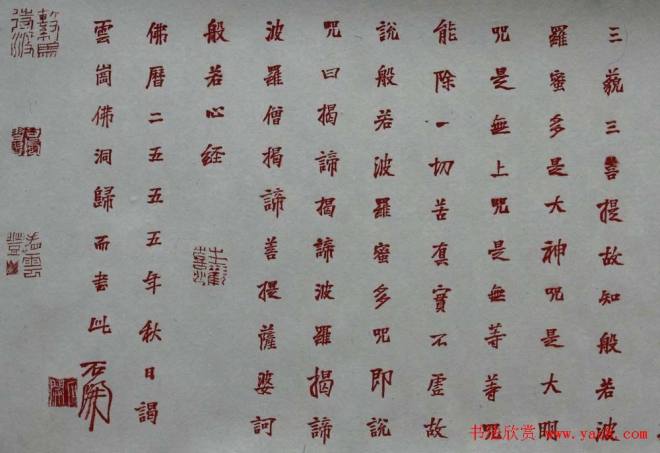 三藐三菩提故知般若波
羅蜜多是大神咒是大明
咒是無上咒是無等等咒
能除一切苦真實不虛故
說般若波羅蜜多咒即說
咒曰揭諦揭諦波羅揭諦
波羅僧揭諦菩提薩婆訶
般若心経
佛曆二五五五年秋日謁
雲崗佛洞歸而書此
石開
书法欣赏 www.yac8.com